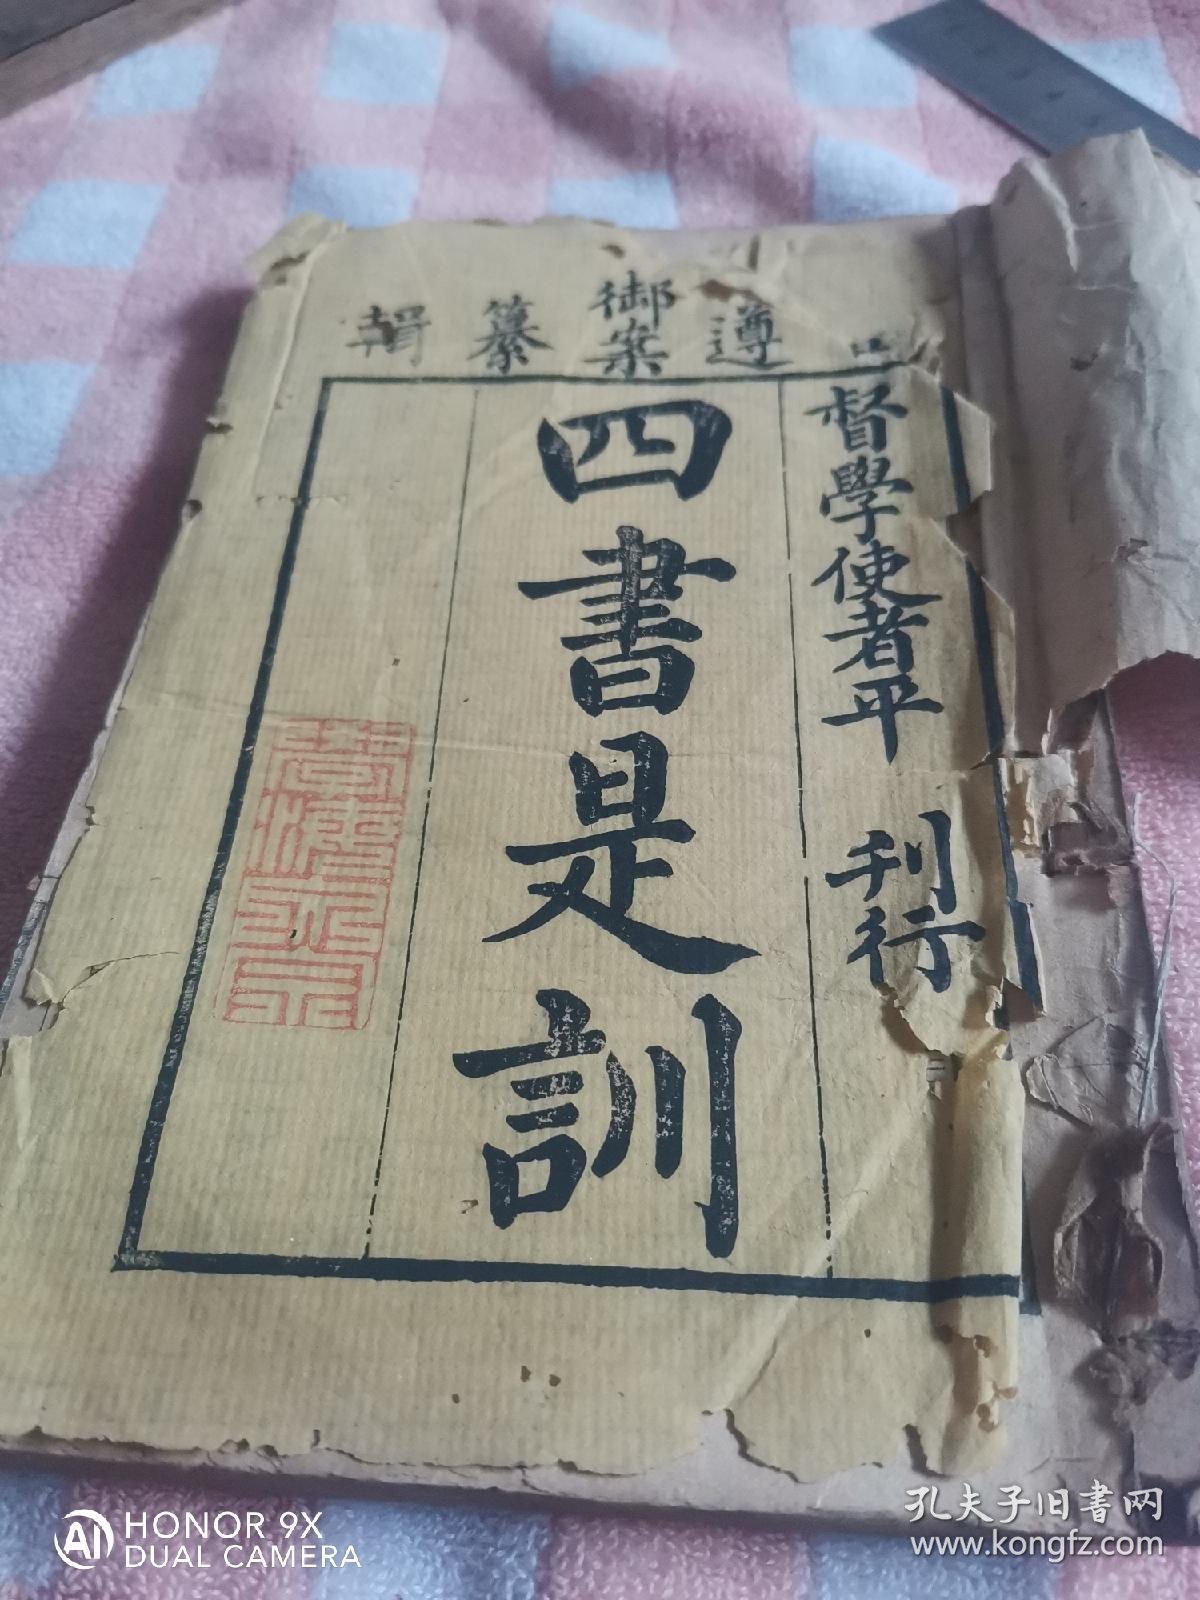 遵御案纂輯
督學使者平 刊行
四書是訓
HONOR 9X
DUAL CAMERA
孔夫子旧书网
www.kongfz.com